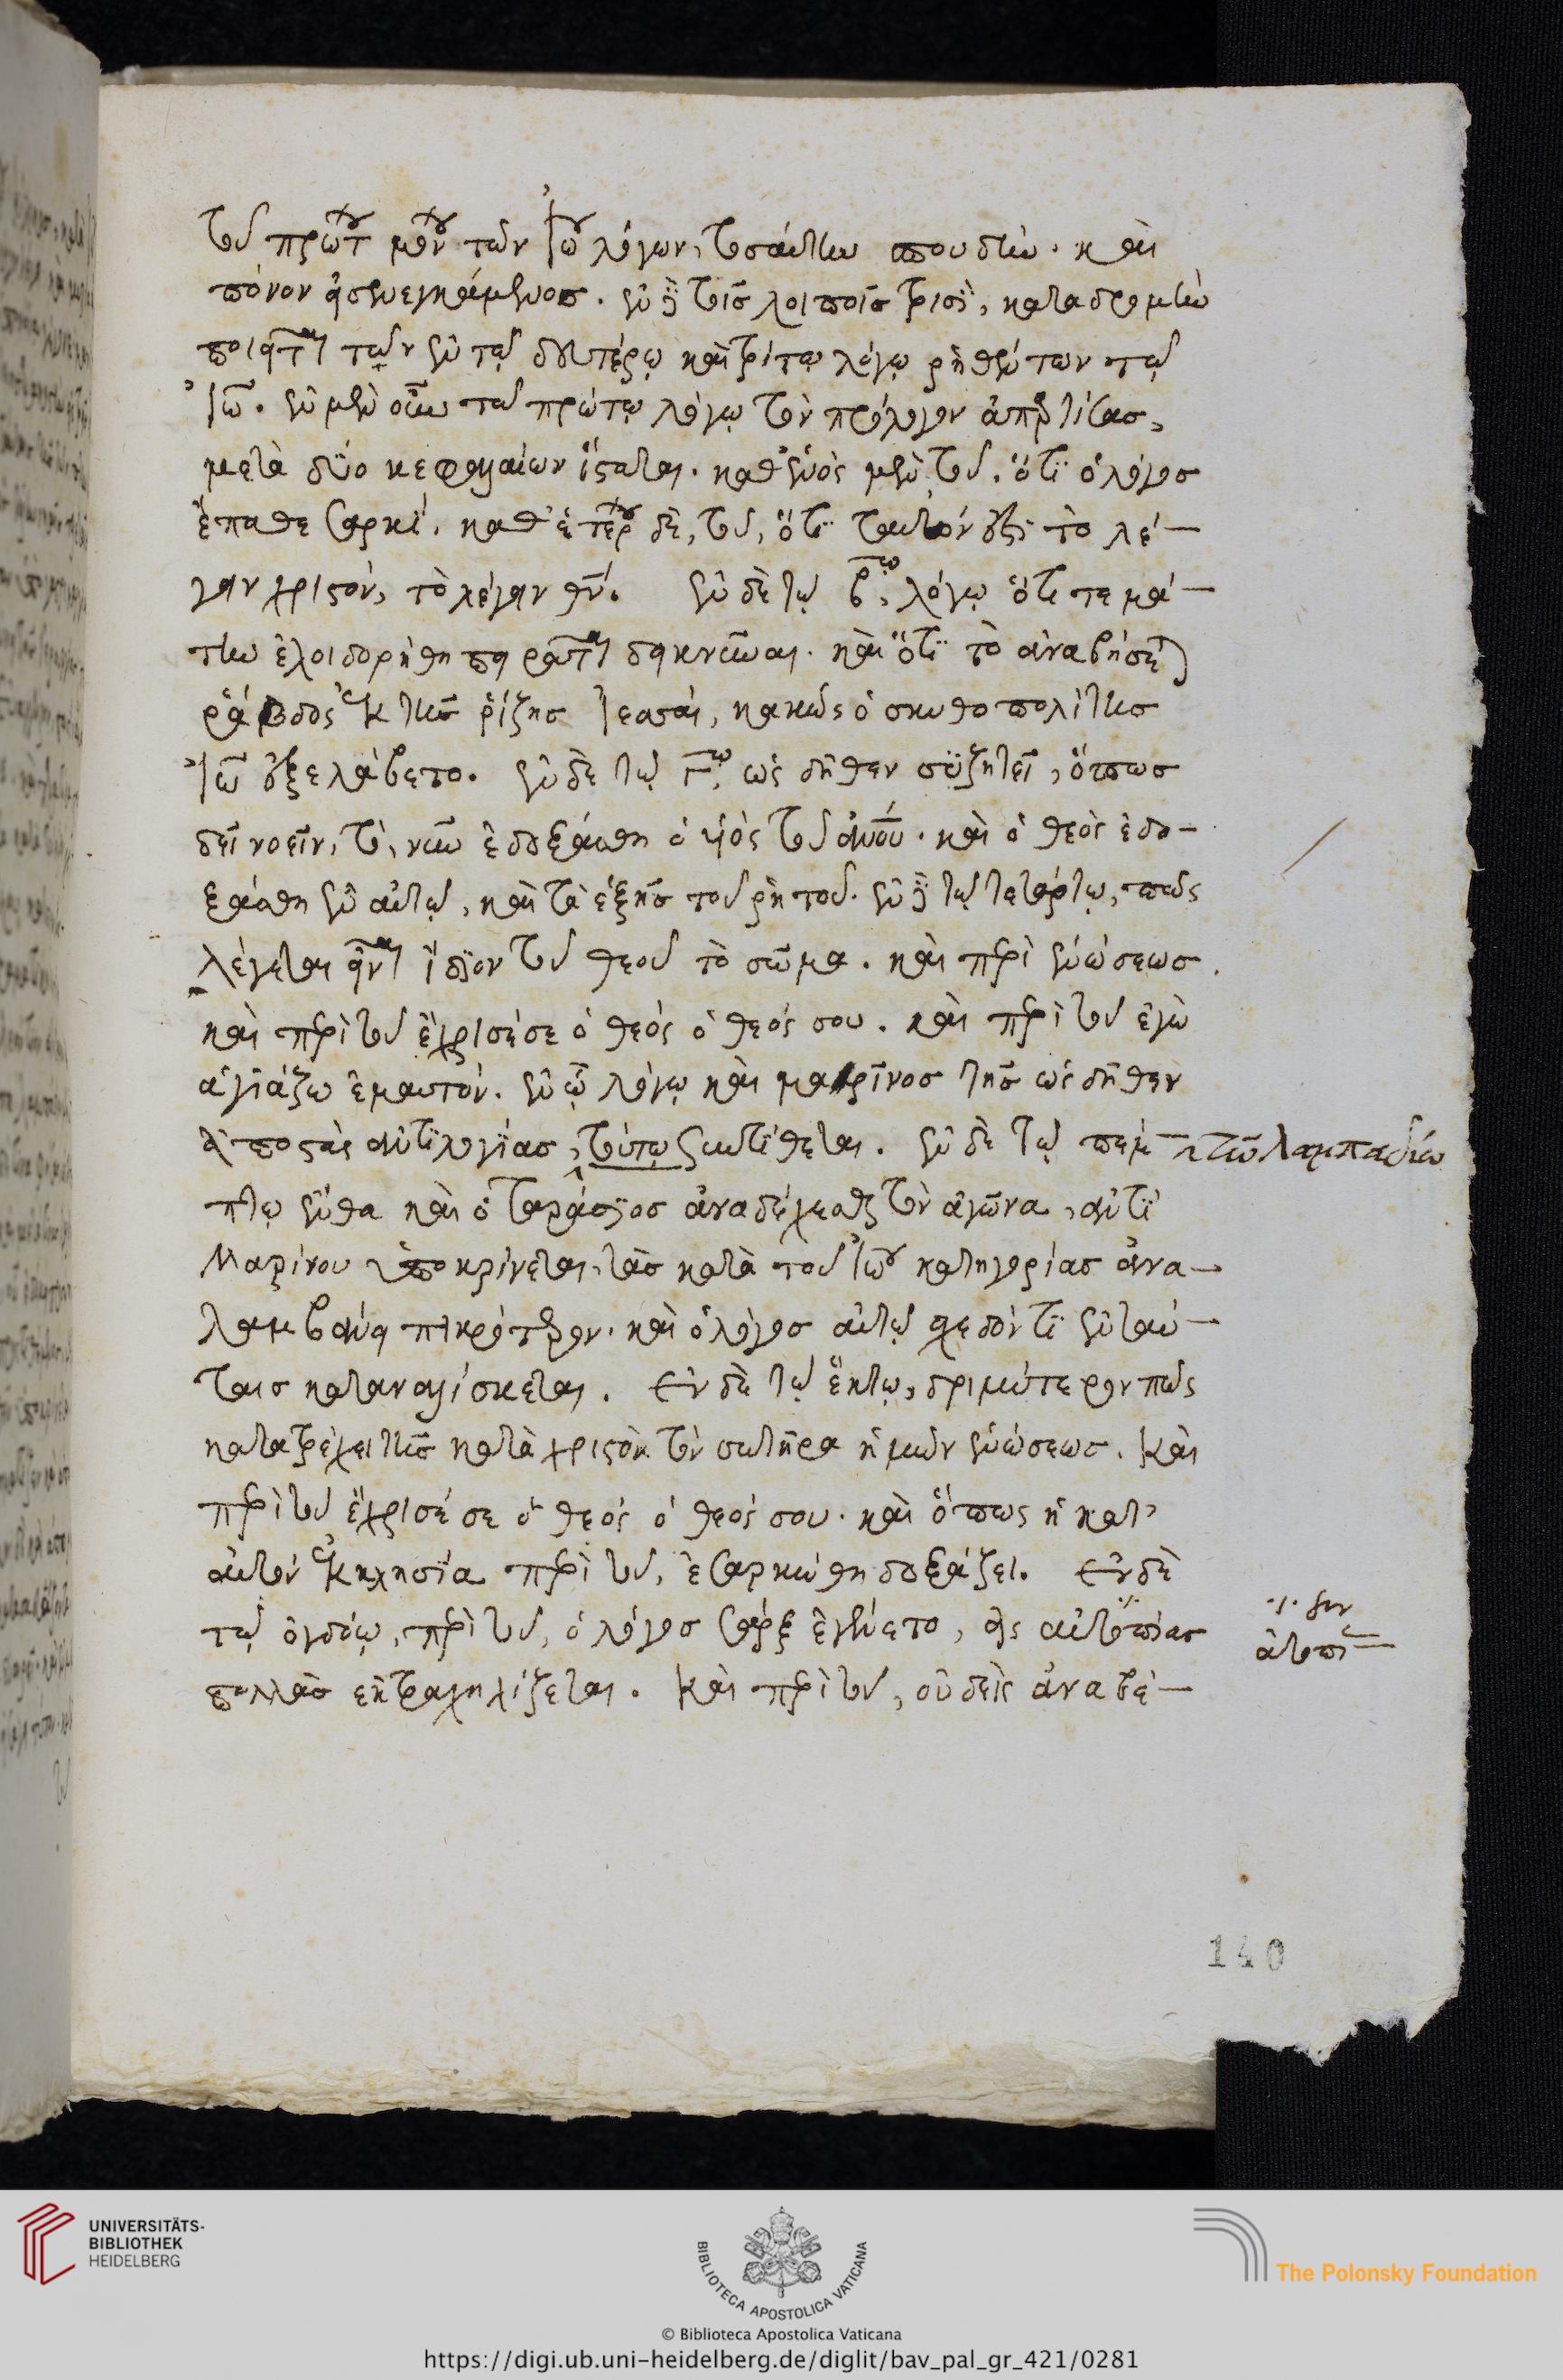 τοῦ πρώτου μόνου τῶν Ἰω λόγων, τοσαύτην σπουδὴν. καὶ
πόνον εἰσενεγκάμενος. ἐν δὲ τοῖς λοιποῖς τρισὶ, καταδρομὴν
ποιεῖται τῶν ἐν τῷ δευτέρῳ καὶ τρίτῳ λόγῳ ῥηθέντων τῷ
Ἰω. ἐν μὲν οὖν τῷ πρώτῳ λόγῳ τὸν πρόλογον ἀπαρτίσας,
μετὰ δύο κεφαλαίων ἵσταται. καθ' ἑνὸς μὲν τοῦ, ὅτι ὁ λόγος
ἔπαθε σαρκί. καθ' ἑτέρου δὲ, τοῦ, ὅτι ταυτόν ἐστι τὸ λέ-
γειν χριστόν, τὸ λέγειν θν. ἐν δὲ τῷ βω, λόγῳ ὅτι τε μά-
την ἐλοιδορήθη πειρᾶται δεικνῦναι. καὶ ὅτι τὸ ἀναβήσεται
ῥάβδος ἐκ τῆς ῥίζης Ἰεσσαί, κακῶς ὁ σκυθοπολίτης
Ἰω ἐξελάβετο. ἐν δὲ τῷ Γω, ὡς δῆθεν συζητεῖ, ὅπως
δεῖ νοεῖν, τό, νῦν ἐδοξάσθη ὁ υἱὸς τοῦ ἀνου. καὶ ὁ θεὸς ἐδο-
ξάσθη ἐν αὐτῷ, καὶ τὰ ἑξῆς τοῦ ῥητοῦ. ἐν δὲ τῷ τετάρτῳ, πῶς
λέγεται εἶναι ἴδιον τοῦ θεοῦ τὸ σῶμα. καὶ περὶ ἑνώσεως.
καὶ περὶ τοῦ ἔχρισέ σε ὁ θεός ὁ θεός σου. καὶ περὶ τοῦ ἐγὼ
ἁγιάζω ἐμαυτόν. ἐν ᾧ λόγῳ καὶ μαρῖνος τῆς ὡς δῆθεν
ἀποστὰς ἀντιλογίας, τόπῳ συντίθεται. ἐν δὲ τῷ πέμ-
τῶ λαμπαδίω
πτῳ ἔνθα καὶ ὁ ταράσιος ἀναδέχεσθαι τὸν ἀγῶνα, ἀντὶ
Μαρίνου ὑποκρίνεται, τὰς κατὰ τοῦ Ἰωου κατηγορίας ἀνα-
λαμβάνει πικρότερον. καὶ ὁ λόγος αὐτῷ σχεδόν τι ἐν ταύ-
ταις καταναλίσκεται. Ἐν δὲ τῷ ἕκτῳ, δριμύτερον πῶς
κατατρέχει τῆς κατὰ χριστὸν τὸν σωτῆρα ἡμῶν ἑνώσεως. Καὶ
περὶ τοῦ ἔχρισέ σε ὁ θεός ὁ θεός σου. καὶ ὅπως ἡ κατ'
αὐτὸν ἐκκλησία περὶ τοῦ, ἐσαρκώθη δοξάζει. Ἐν δὲ
τῷ ὀγδόῳ, περὶ τοῦ, ὁ λόγος σάρξ ἐγένετο, εἰς αὐτοπίας
ἀτοπι
πολλὰς ἐκτραχηλίζεται. Καὶ περὶ τοῦ, οὐδεὶς ἀναβέ-
140
UNIVERSITÄTS-
BIBLIOTHEK
HEIDELBERG
BIBLIOTECA APOSTOLICA VATICANA
The Polonsky Foundation
© Biblioteca Apostolica Vaticana
https://digi.ub.uni-heidelberg.de/diglit/bav_pal_gr_421/0281